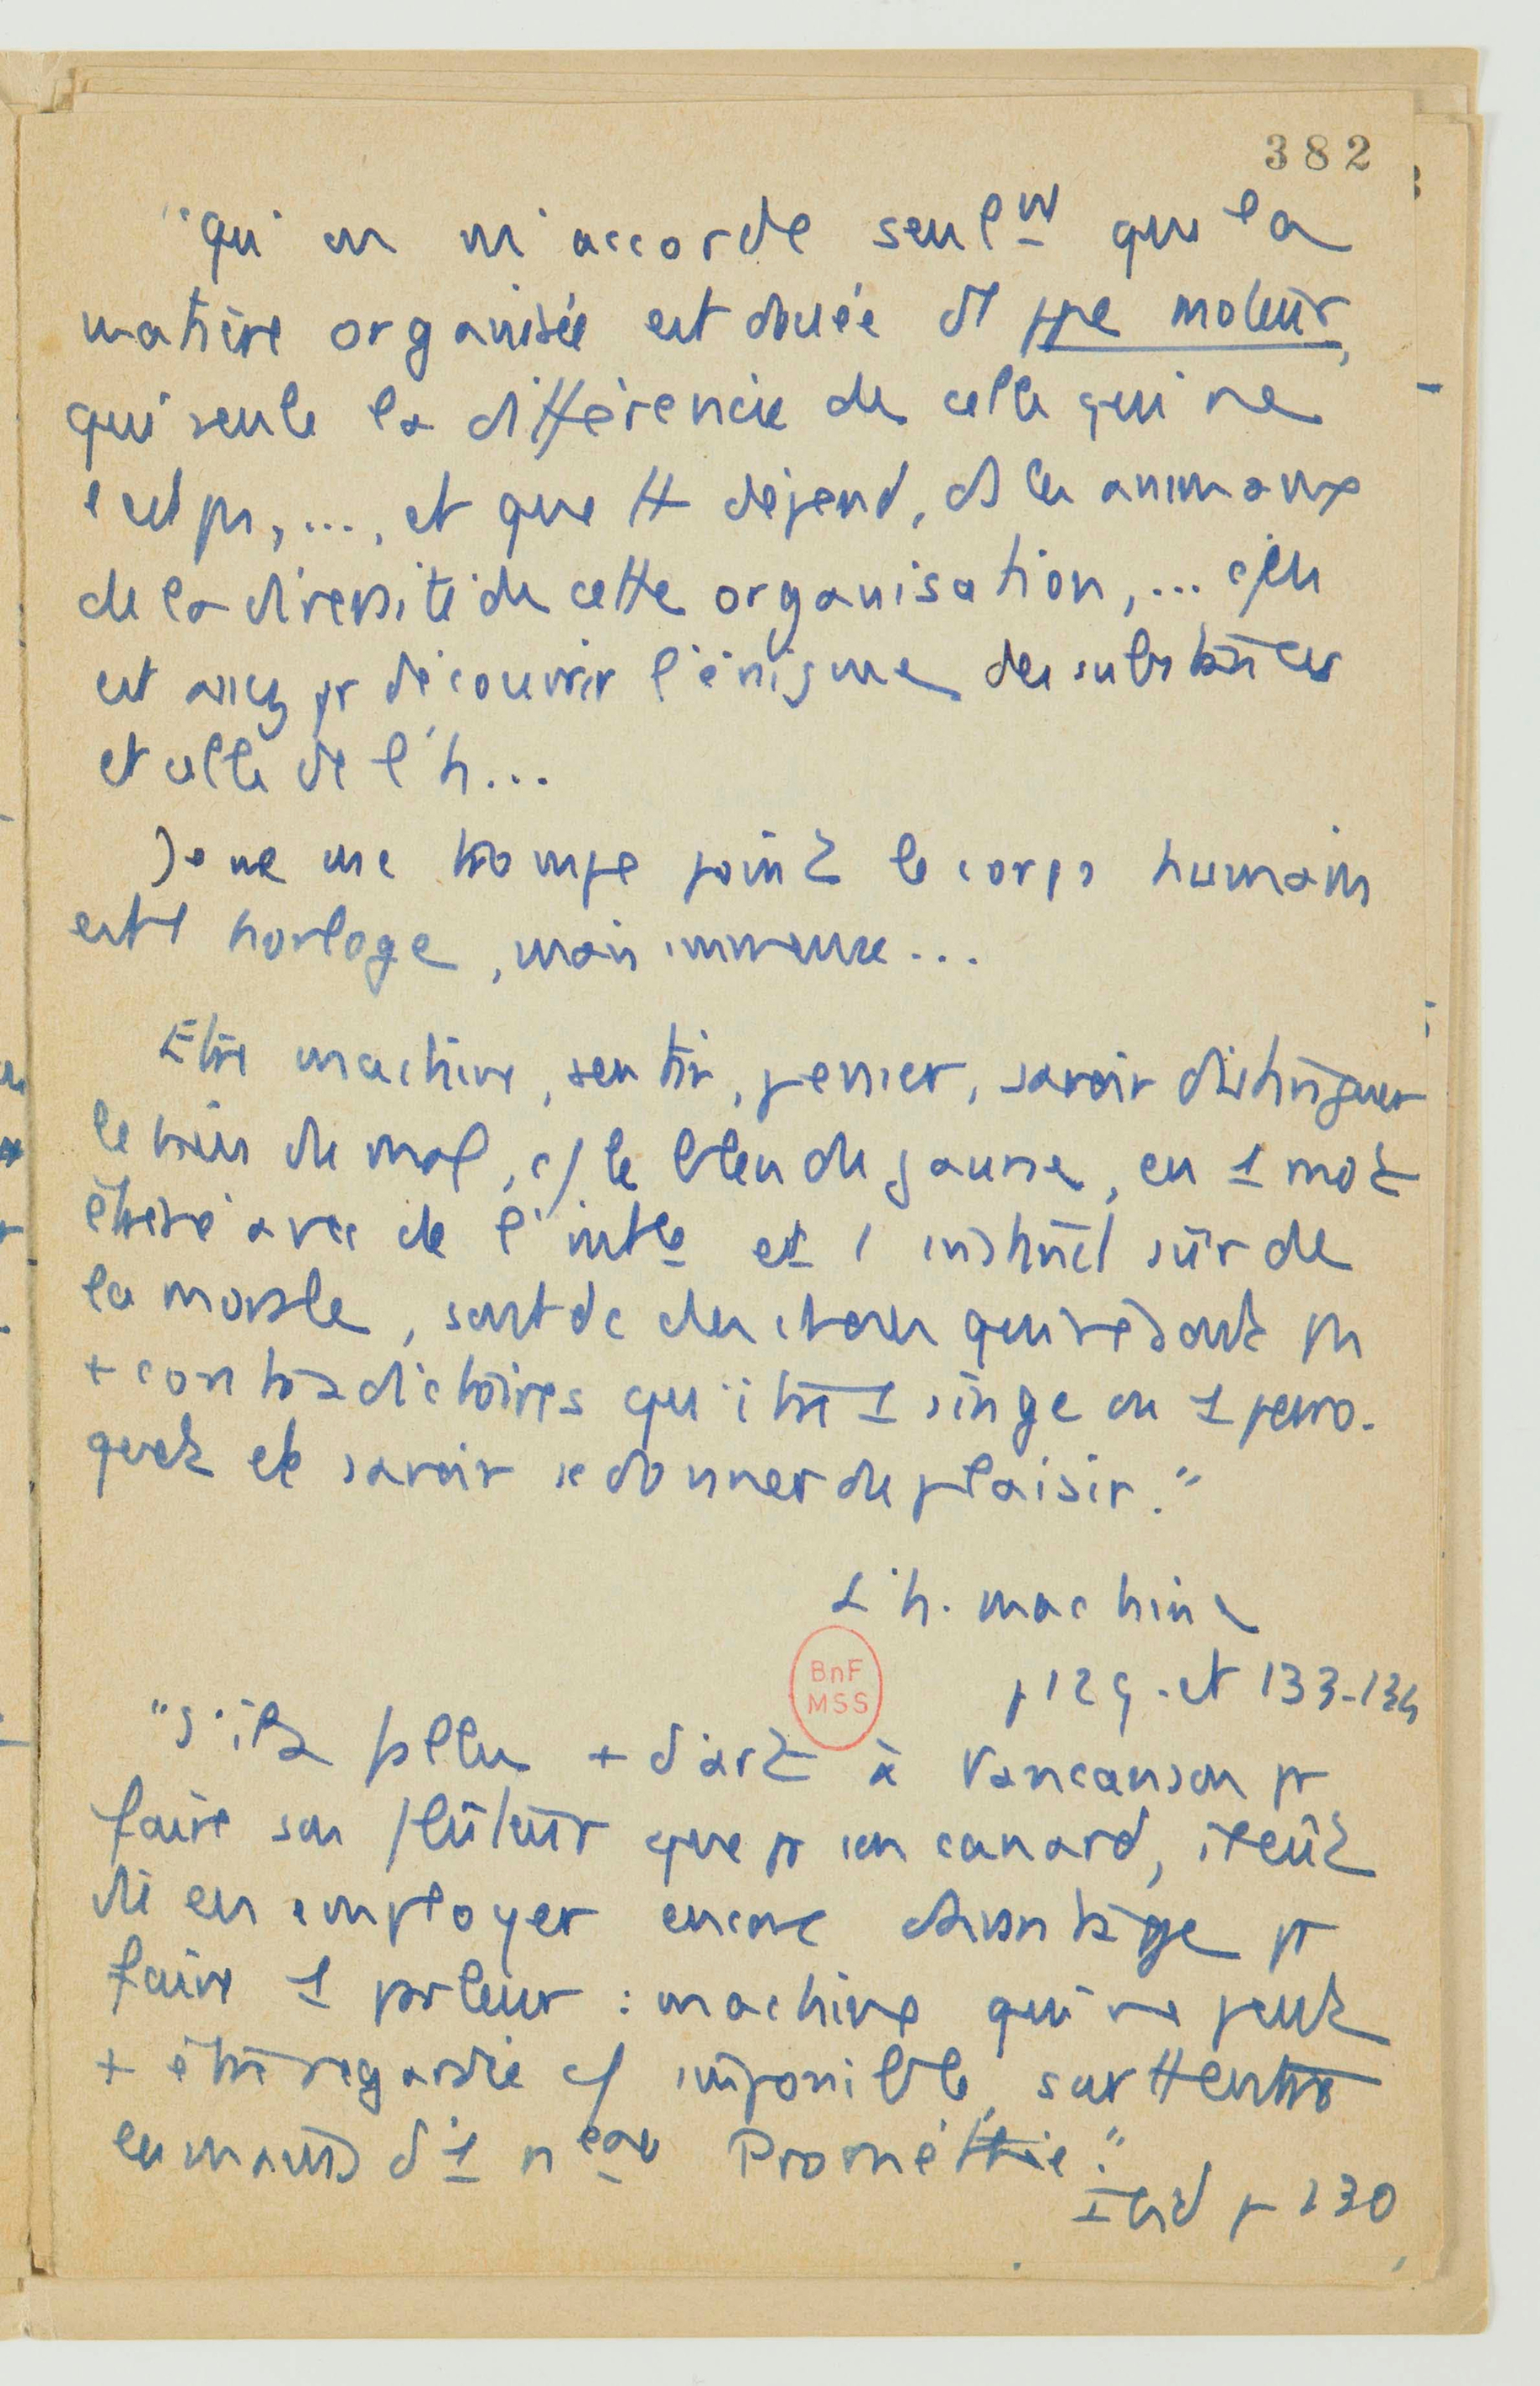 382
"qu'on m'accorde seulmt que la
matière organisée est douée d'1 ppe moteur,
qui seule la différencie de celle qui ne
l'est pas, ..., et que tt dépend, ds les animaux
de la diversité de cette organisation, ... c'en
est assez pr découvrir l'énigme des substances
et celle de l'h...
Je ne me trompe point le corps humain
est 1 horloge, mais immense...
Etre machine, sentir, penser, savoir distinguer
le bien du mal, c/ le bleu du jaune, en 1 mot
être né avec de l'intce et 1 instinct sûr de
la morale, sont dc des choses qui ne sont pas
+ contradictoires qu'être 1 singe ou 1 perro-
quet et savoir se donner du plaisir."
L'h. machine
p 129. et 133-134
BnF
MSS
"s'il a fallu + d'art à Vaucanson pr
faire son flûteur que pr son canard, il eût
dû en employer encore davantage pr
faire 1 parleur : machine qui ne peut
+ être regardée c/ impossible, surtt entre
les mains d'1 nveau Prométhée."
Ibid p 130